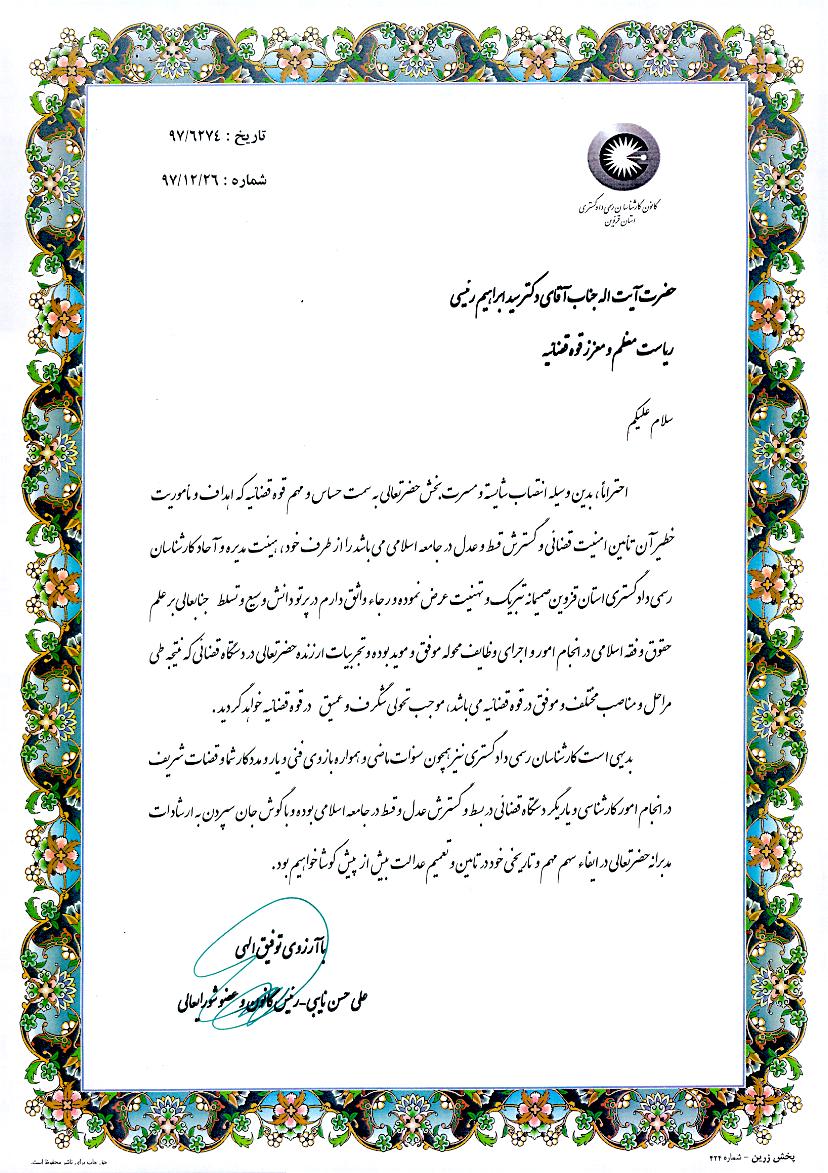 تاریخ : ۹۷/۶۲۷۴
شماره : ۹۷/۱۲/۲۶
کانون کارشناسان رسمی دادگستری
استان قزوین
حضرت آیت اله جناب آقای دکتر سید ابراهیم رئیسی
ریاست معظم و معزز قوه قضائیه
سلام علیکم
احتراماً، بدین وسیله انتصاب شایسته و مسرت بخش حضرتعالی به سمت حساس و مهم قوه قضائیه که اهداف و مأموریت
خطیر آن تأمین امنیت قضائی و گسترش قسط و عدل در جامعه اسلامی می باشد را از طرف خود، هیئت مدیره و آحاد کارشناسان
رسمی دادگستری استان قزوین صمیمانه تبریک و تهنیت عرض نموده و رجاء واثق دارم در پرتو دانش وسیع و تسلط جنابعالی بر علم
حقوق و فقه اسلامی در انجام امور و اجرای وظایف محوله موفق و موید بوده و تجربیات ارزنده حضرتعالی در دستگاه قضائی که نتیجه طی
مراحل و مناصب مختلف و موفق در قوه قضائیه می باشد، موجب تحولی شگرف و عمیق در قوه قضائیه خواهد گردید .
بدیهی است کارشناسان رسمی دادگستری نیز همچون سنوات ماضی و همواره بازوی فنی و یار و مددکار شما و قضات شریف
در انجام امور کارشناسی و یاریگر دستگاه قضائی در بسط و گسترش عدل و قسط در جامعه اسلامی بوده و با گوش جان سپردن به ارشادات
مدبرانه حضرتعالی در ایفاء سهم مهم و تاریخی خود در تامین و تعمیم عدالت بیش از پیش کوشا خواهیم بود.
با آرزوی توفیق الهی
علی حسن نایبی-رئیس کانون و عضو شورایعالی
پخش زرین - شماره ۴۲۴
حق چاپ برای ناشر محفوظ است.